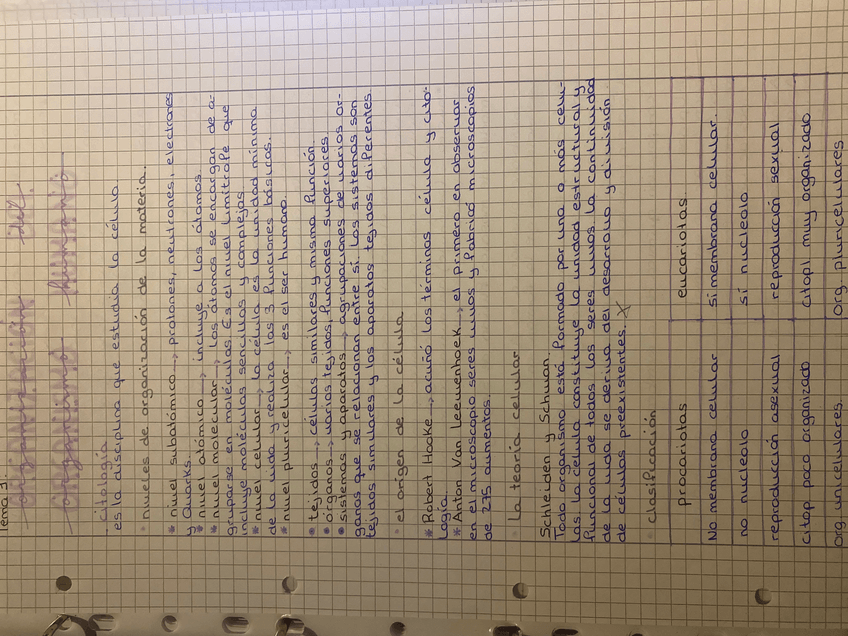 Tema 1:
organización del
organismo humano
· citología
es la disciplina que estudia la célula.
· niveles de organización de la materia.
* nivel subatómico → protones, neutrones, electrones
y Quarks.
* nivel atómico → incluye a los átomos.
* nivel molecular → los átomos se encargan de a-
gruparse en moléculas. Es el nivel limítrofe que
incluye moléculas sencillas y complejas
* nivel celular → la célula es la unidad mínima
de la vida y realiza las 3 funciones básicas.
* nivel pluricelular → es el ser humano.
* tejidos → células similares y misma función
* órganos → varios tejidos, funciones superiores
* sistemas y aparatos → agrupaciones de varios or-
ganos que se relacionan entre sí. Los sistemas son
tejidos similares y los aparatos tejidos diferentes.
· el origen de la célula
* Robert Hooke → acuñó los términos célula y cito-
logía.
* Anton Van Leewenhoek → el primero en observar
en el microscopio seres vivos y fabricó microscopios
de 275 aumentos.
· La teoría celular
Schleiden y Schwan
Todo organismo está formado por una o más célu-
las. La célula constituye la unidad estructural y
funcional de todos los seres vivos. La continuidad
de la vida se deriva del desarrollo y división
de células preexistentes.
· clasificación
procariotas eucariotas
No membrana celular sí membrana celular.
no nucleolo sí nucleolo
reproducción asexual reproducción sexual
citop poco organizado citopl muy organizado
org. unicelulares. Org pluricelulares